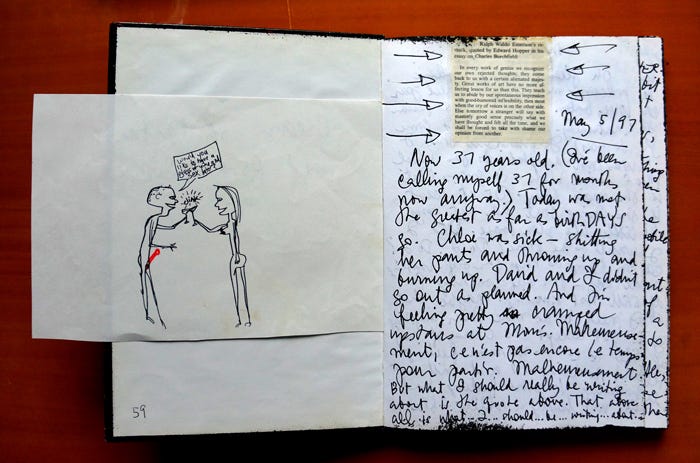 Would you
like to have a
DINK
59
Ralph Waldo Emerson's re-
mark, quoted by Edward Hopper in his
essay on Charles Burchfield:
In every work of genius we recognize
our own rejected thoughts; they come
back to us with a certain alienated majes-
ty. Great works of art have no more af-
fecting lesson for us than this. They teach
us to abide by our spontaneous impression
with good-humored inflexibility, then most
when the cry of voices is on the other side.
Else tomorrow a stranger will say with
masterly good sense precisely what we
have thought and felt all the time, and we
shall be forced to take with shame our
opinion from another.
May 5/97
Now 37 years old. (I've been
calling myself 37 for months
now anyway.) Today was not
the greatest as far as birthDAYS
go. Chloe was sick – shitting
her pants and throwing up and
burning up. David and I didn't
go out as planned. And I'm
feeling pretty cramped
upstairs at Mom's. Malheureuse-
ment, ce n'est pas encore le temps
pour partir. Malheureusement
But what I should really be writing
about is the quote above. That above
all is what... I... should... be... writing... about...